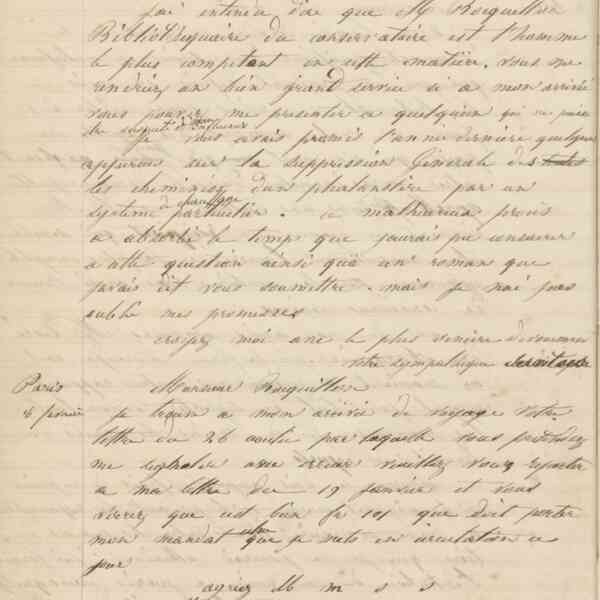 J'ai entendu dire que M Roquillion
Bibliotéquaire du conservatoire est l'homme
le plus competant en cette matière. vous me
rendriez un bien grand service si a mon arrivée
vous pouviez me presenter a quelqu'un qui me puisse
être suspecté d'
Je vous avais promis l'année dernière quelque
apperçus sur la suppression Générale des toutes
les cheminées d'un phalanstère par un
système particulier. ce malheureux procès
de chauffage
a absorbé le temps que j'aurais pu consacrer
a cette question ainsi qu'a un roman que
j'avais à vous soumettre. mais je n'ai pas
oublié mes promesses
croyez moi avec le plus sincère devouement
votre sympathique serviteur
Paris
6 fevrier
Monsieur Roquillion
je trouve a mon arrivée de voyage votre
lettre du 26 par laquelle vous prétendez
me signaler une erreur veuillez vous reporter
a ma lettre du 19 janvier et vous
verrez que est bien fr 101 que doit porter
mon mandat que je mets en circulation ce
jour
agréez M m s s